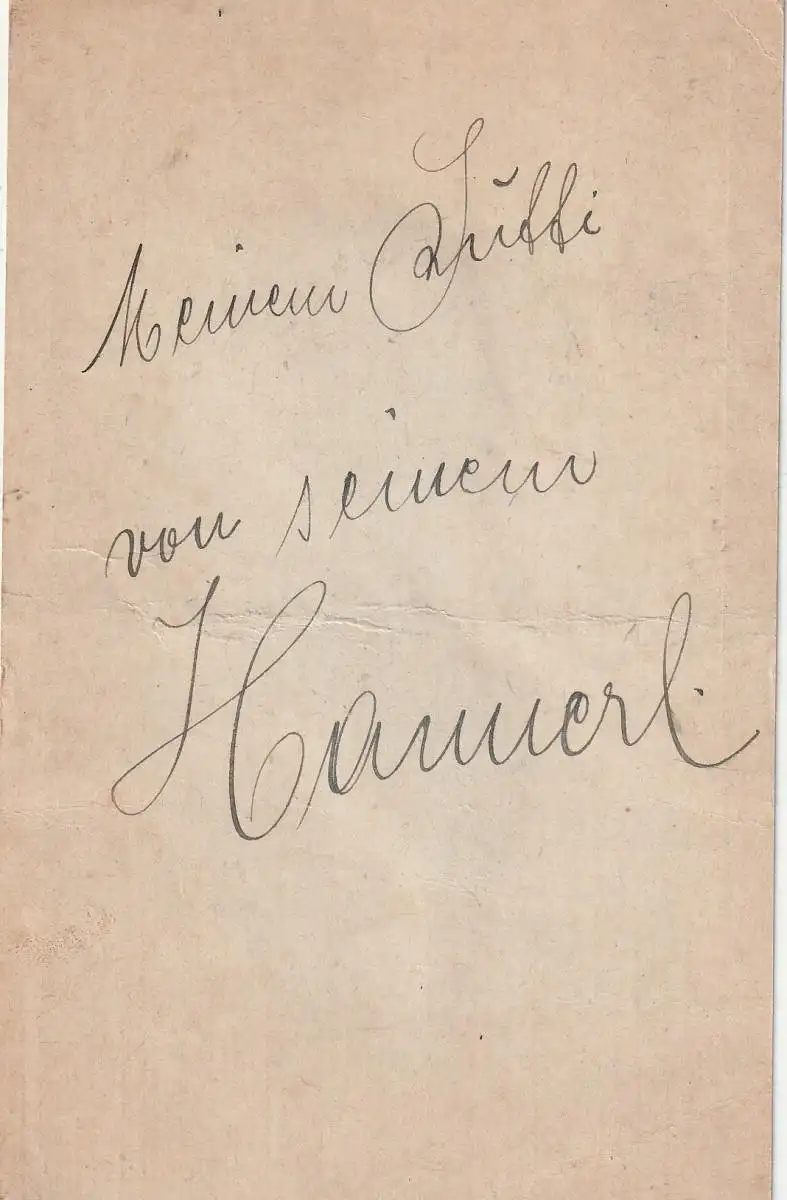 Meinem
von seinem
Hannerl.